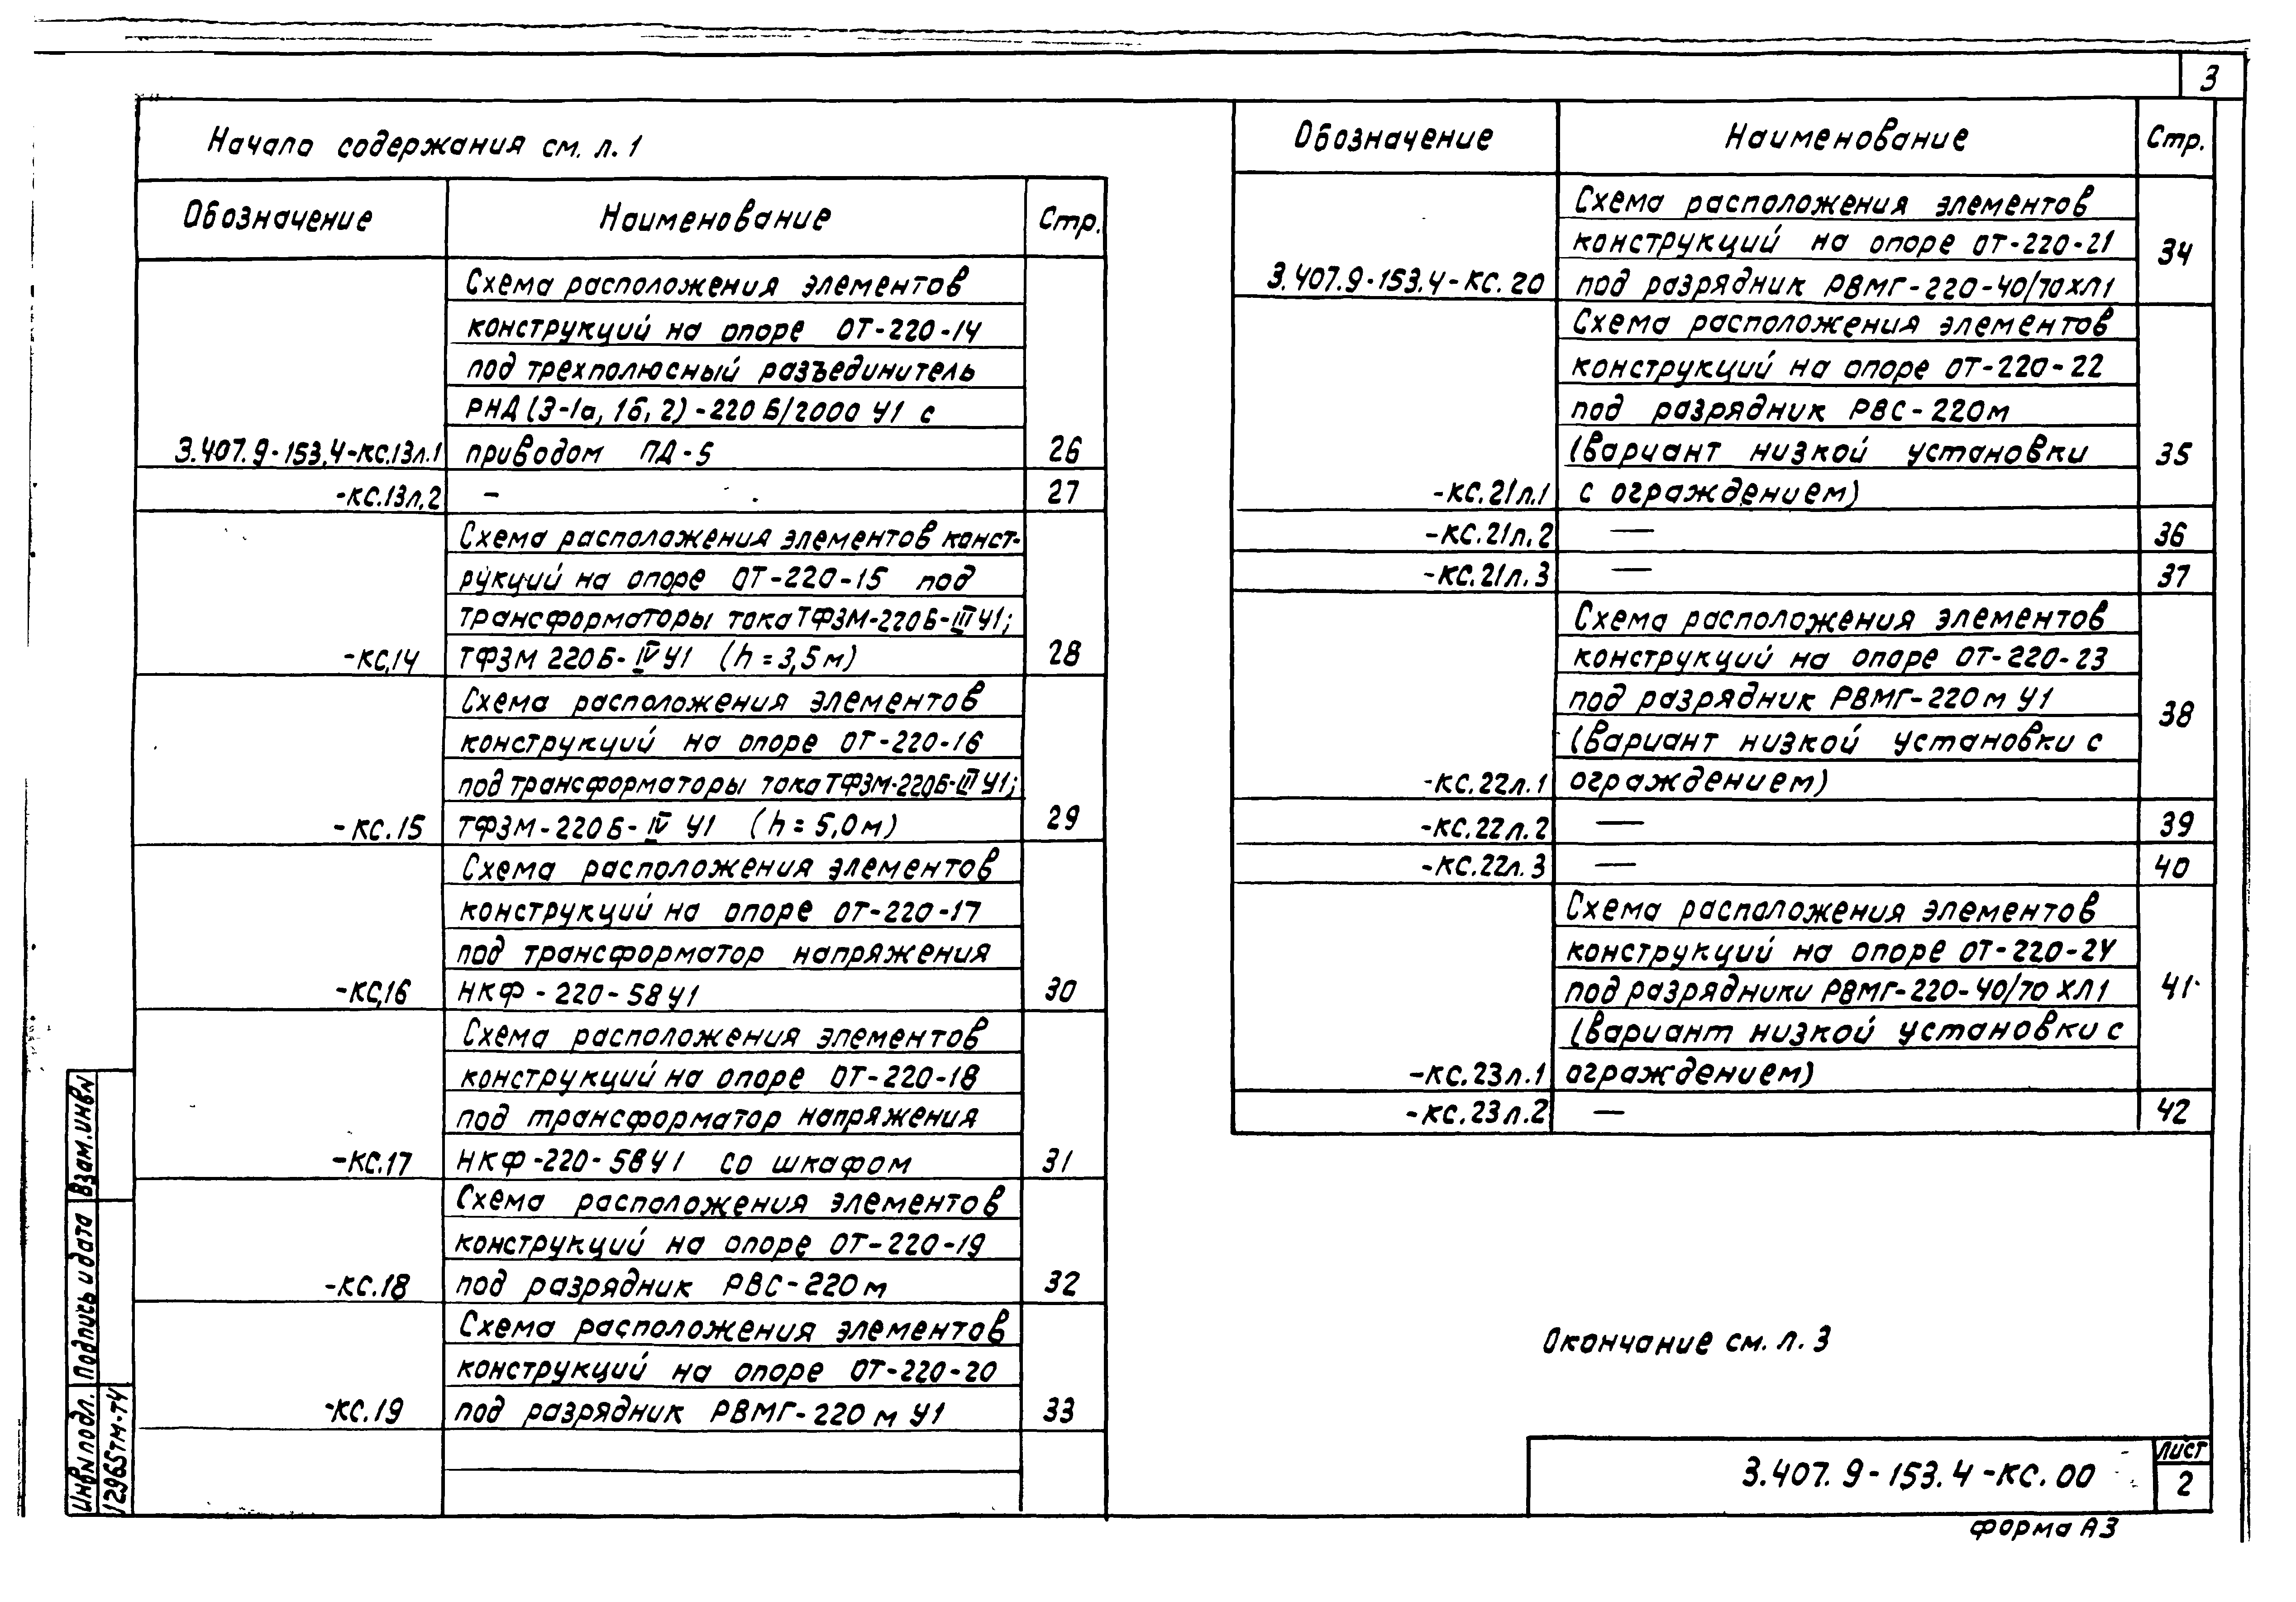 3
Начало содержания см. л. 1
Обозначение Наименование Стр.
Схема расположения элементов
конструкций на опоре ОТ-220-14
под трехполюсный разъединитель
РНД(З-1а, 1б, 2)-220 Б/2000 У1 с
3.407.9-153.4-КС.13л.1 приводом ПД-5 26
-КС.13л.2 - 27
Схема расположения элементов конст-
рукций на опоре ОТ-220-15 под
трансформаторы тока ТФЗМ-220Б-III У1;
-КС.14 ТФЗМ 220Б-IV У1 (h = 3,5 м) 28
Схема расположения элементов
конструкций на опоре ОТ-220-16
под трансформаторы тока ТФЗМ-220Б-III У1;
-КС.15 ТФЗМ-220Б-IV У1 (h = 5,0 м) 29
Схема расположения элементов
конструкций на опоре ОТ-220-17
под трансформатор напряжения
-КС.16 НКФ-220-58У1 30
Схема расположения элементов
конструкций на опоре ОТ-220-18
под трансформатор напряжения
-КС.17 НКФ-220-58У1 со шкафом 31
Схема расположения элементов
конструкций на опоре ОТ-220-19
-КС.18 под разрядник РВС-220 м 32
Схема расположения элементов
конструкций на опоре ОТ-220-20
-КС.19 под разрядник РВМГ-220 м У1 33
Обозначение Наименование Стр.
Схема расположения элементов
конструкций на опоре ОТ-220-21 34
3.407.9-153.4-КС.20 под разрядник РВМГ-220-40/70ХЛ1
Схема расположения элементов
конструкций на опоре ОТ-220-22
под разрядник РВС-220м
(вариант низкой установки 35
-КС.21л.1 с ограждением)
-КС.21л.2 — 36
-КС.21л.3 — 37
Схема расположения элементов
конструкций на опоре ОТ-220-23
под разрядник РВМГ-220 м У1 38
(вариант низкой установки с
-КС.22л.1 ограждением)
-КС.22л.2 — 39
-КС.22л.3 — 40
Схема расположения элементов
конструкций на опоре ОТ-220-24
под разрядники РВМГ-220-40/70 ХЛ1 41
(вариант низкой установки с
-КС.23л.1 ограждением)
-КС.23л.2 — 42
Окончание см. л. 3
3.407.9-153.4-КС.00
лист
2
форма А3
Взам.инв№
Подпись и дата
Инв№подл.
12965тм-т4